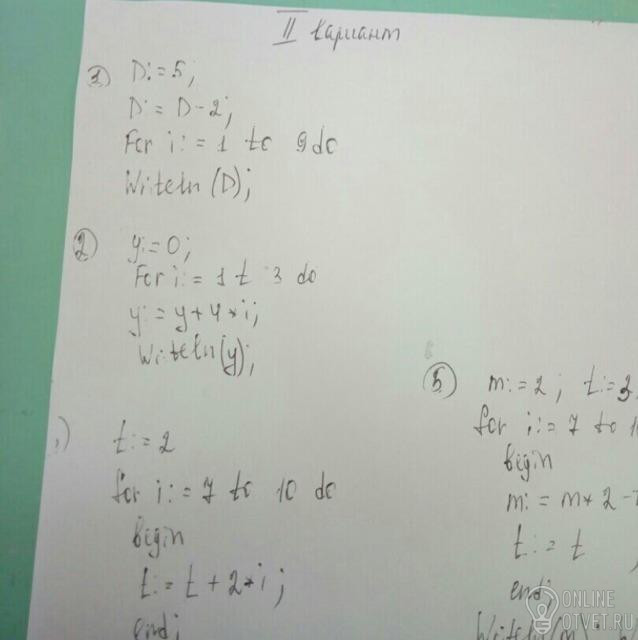 II вариант
1) D:=5;
D:= D-2;
For i:=1 to 9 do
Writeln (D);
2) y:=0;
For i:=1 t 3 do
y:=y+4*i;
Writeln(y);
) t:=2
for i:=7 to 10 do
begin
t:=t+2*i;
end;
5) m:=2; t:=3
for i:=7 to 1
begin
m:=m*2-
t:=t
end;
Writeln
ONLINE
OTVET.RU